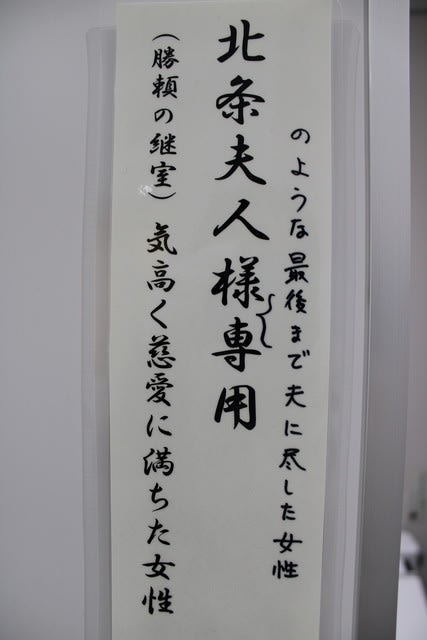 のような最後まで夫に尽した女性
北条夫人様専用
(勝頼の継室) 気高く慈愛に満ちた女性